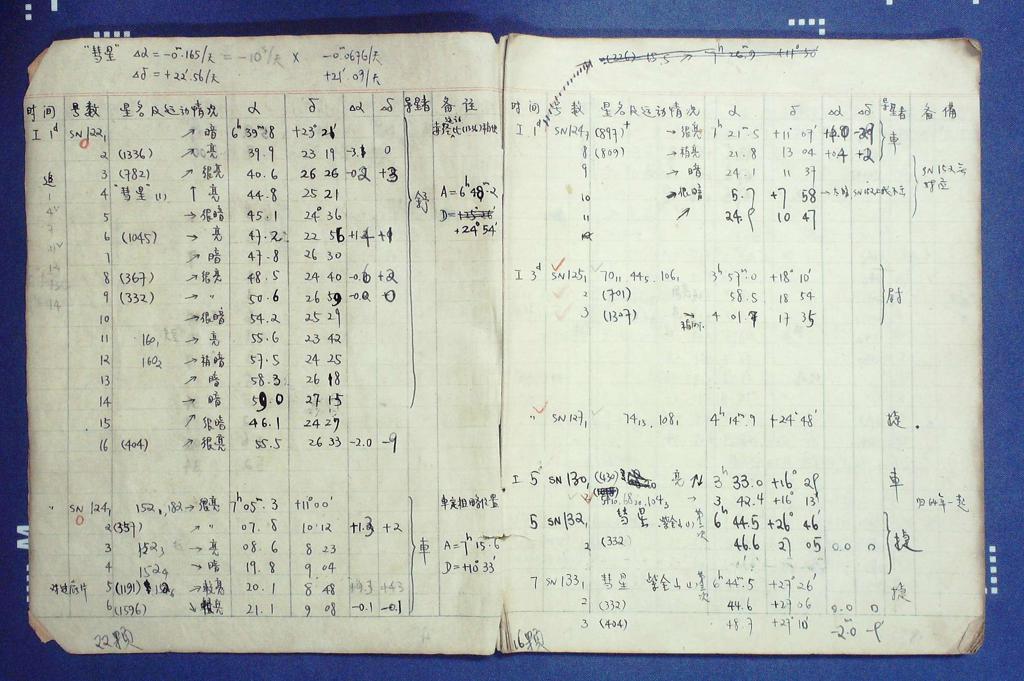 "彗星" Δα = -0ᵐ.165/天 = -10ˢ/天 × -0ᵐ.0676/天
Δδ = +22′.56/天 +21′.09/天
时间 号数 星名及运动情况 α δ Δα Δδ 量者 备注
I 1ᵈ SN122, ↗ 暗 6ʰ 39ᵐ.8 +23° 21′
2 (1336) ↗ 亮 39.9 23 19 -3.1 0
追 3 (782) ↗ 很亮 40.6 26 26 -0.2 +3
4 "彗星" (1) ↑ 亮 44.8 25 21 A=6ʰ48ᵐ.2
5 → 很暗 45.1 24° 36 舒
6 (1045) → 亮 47.2 22 56 +1.4 +1 +24°54′
7 → 暗 47.8 26 30
8 (367) → 很亮 48.5 24 40 +2
9 (332) → " 50.6 26 59 -0.0 0
10 → 很暗 54.2 25 29
11 16₀₁ → 亮 55.6 23 42
12 160₂ → 稍暗 57.5 24 25
13 ↗ 暗 58.3 26 18
14 → 暗 59.0 27 15
15 ↗ 很暗 46.1 24 27
16 (404) → 很亮 55.5 26 33 -2.0 -9
" SN124, 152₁, 182 → 很亮 7ʰ 05ᵐ.3 +11°00′
2 (357) " 07.8 10 12 +1.3 +2
3 152₃ → 亮 08.6 8 23 車 A=7ʰ15ᵐ.6
4 152₄ → 暗 19.8 9 04 D=+10°33′
底片 5 (1191) 較亮 20.1 8 48 +9.3 +43
6 (1596) 21.1 9 08 -0.1 -0.1
22颗
时间 号数 星名及运动情况 α δ Δα Δδ 量者 备備
I 1ᵈ SN124₇ (897) → 很亮 7ʰ 21ᵐ.5 +11° 07′ 車
8 (809) → 稍亮 21.8 13 04 +0.4 +2
9 24.1 11 37
10 → 很暗 5.7 +7 58
11 ↗ 24.9 10 47
I 3ᵈ SN125, 70₁₁ 44₅, 106₁ 3ʰ 57ᵐ.0 +18° 10′
2 (701) 58.5 18 54 尉
3 (1307) 4 01.9 17 35
" SN127, 74₁₅, 108₁ 4ʰ 14ᵐ.9 +24° 48′ 捷.
I 5 SN130, (430) 亮 3ʰ 33.0 +16° 29′ 車
2 68₂₀, 104₃ → 3 42.4 +16° 13′
5 SN132, 彗星 紫金山 6ʰ 44.5 +26° 46′ 捷
2 (332) 46.6 27 05 0.0 0
7 SN133, 彗星 紫金山 6ʰ 44ᵐ.5 +27° 26′ 捷
2 (332) 44.6 +27 06 0.0 0
3 (404) 48.7 +27° 10′ -2.0 -9′
16颗